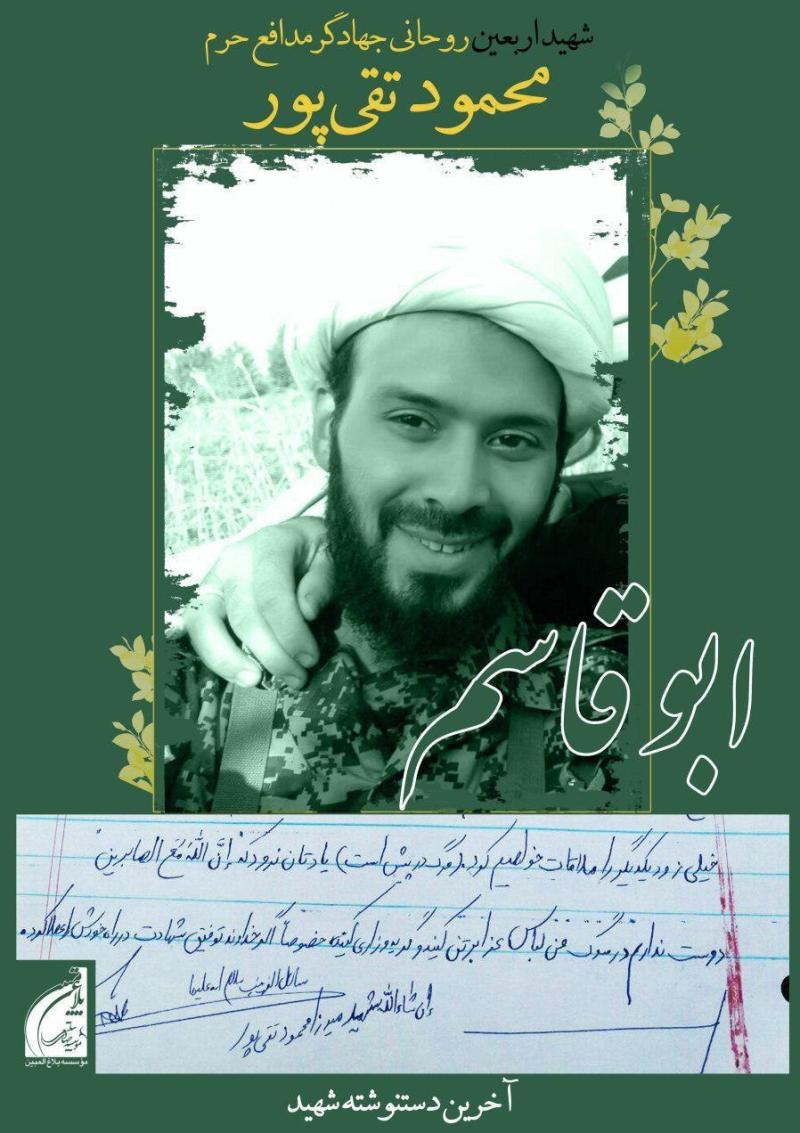 شهید اربعین روحانی جهادگر مدافع حرم
محمود تقی‌پور
ابو قاسم
خیلی زود یکدیگر را ملاقات خواهیم کرد. (مرگ در پیش است) یادتان نرود که "إنَّ اللهَ مَعَ الصابرین"
دوست ندارم در مرگ من لباس عزا بر تن کنید و گریه و زاری کنید حضوصاً اگر خداوند توفیق شهادت در راه خودش را عطا کرده.
إن شاءالله شهید میرزا محمود تقی‌پور
بلاغ مبین
مؤسسه بلاغ المبین
آخرین دستنوشته شهید